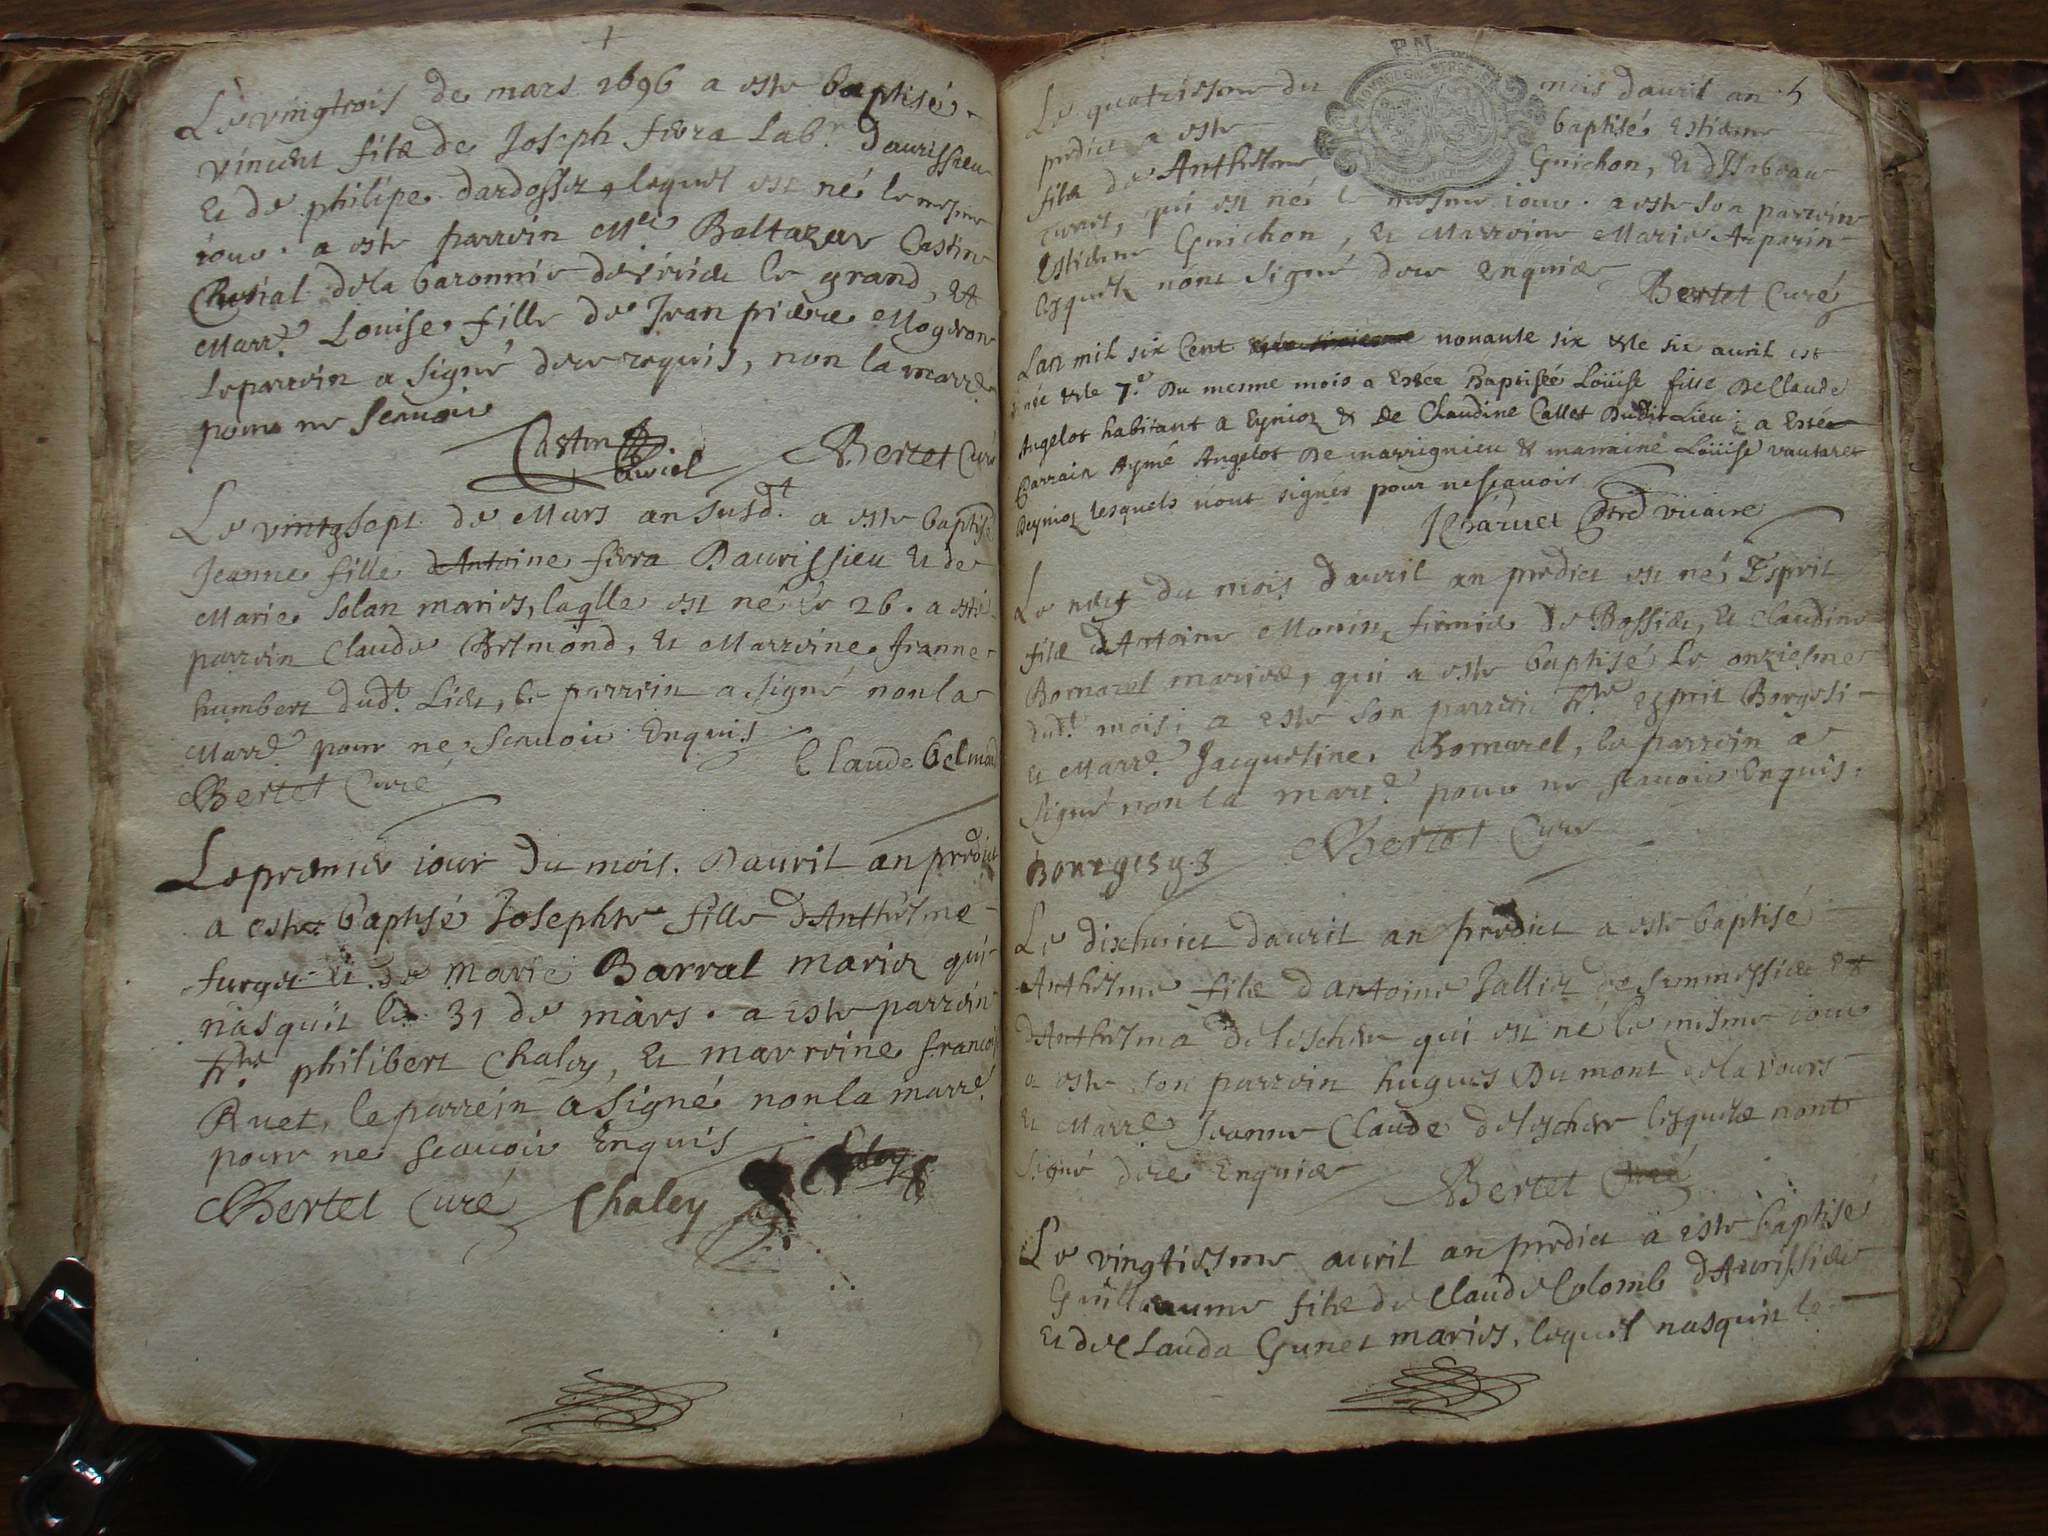 Le vingtrois de mars 1696 a este baptisé
vincent filz de Joseph fivra Labr. Daurissieu
et de philipe dardossez, lequel est né le mesme
iour. a este parrein Mre Baltazar Castin
Curial dela baronnie de le grand, et
Marr.e Louise fille de Jean pierre Mogeron
leparrein a signé dece requis, non la marr.e
pour ne scauoir
Castin Curiel Bertet Curé
Le vintgsept de Mars an susd.t a este baptisé
Jeanne fille dAntoine fivra Daurissieu et de
Marie Solan mariés, laqlle est né le 26. a esté
parrein Claude Belmond, et Marreine Jeanne
humbert dud.t Lieu, le parrein a signé non la
Marr.e pour ne scauoir Enquis
Claude belmond
Bertet Curé
Lepremier iour du mois Dauril an prédict
a este baptisé Josephte fille dAnthelme
furget et de marie Barral mariez qui
nasquit le 31 de mars. a este parrein
philibert Chaley, et marreine francoi
Ruet, le parrein a signé non la marr.e
pour ne scauoir Enquis
Bertet Curé Chaley
Le quatriesme du mois dauril an 5
predict a este baptisé Estienne
filz de Anthelme Guichon, et dIsabeau
qui est né le mesme iour. a este son parrein
Estienne Guichon, et Marreine Marie Arparin
lesquelz nont signé dece enquiz
Bertet Curé
Lan mil six Cent nonante six & le six auril est
née & le 7.e Du mesme mois a Estée Baptisée Loüise fille De Claude
Angelot habitant a Eynioz & De Claudine Callet Dudit Lieu; a Estée
Parrain Aymé Angelot De marrignieu & marrainé Loüise vautaret
Deynioz lesquels nont signés pour nescauoir
JCharuet vicaire
Le neuf du mois dauril an predict est né Esprit
filz dAntoine Monin, fermier de Bossieu, et Claudine
Bornarel mariez, qui a este baptisé le onziesme
dud.t mois; a este son parrein esprit Borgesi
et Marr.e Jacqueline Bornarel, le parrein a
signé non la marr.e pour ne scauoir Enquis.
Bertet Curé
Bourgesy
Le dixhuict dauril an predict a este baptisé
Anthelme filz dantoine Jallier de Sammessieu et
dAnthelma delescheu qui est né le mesme iour
a este son parrein hugues Dumont dela vours
et Marr.e Jeanne Claude delescheu lesquelz nont
signé dece Enquiz
Bertet Curé
Le vingtiesme auril an predict a este baptisé
Guillaume filz de Claude Colomb dAurissieu
et de Clauda Gunet mariés, lequel nasquit le